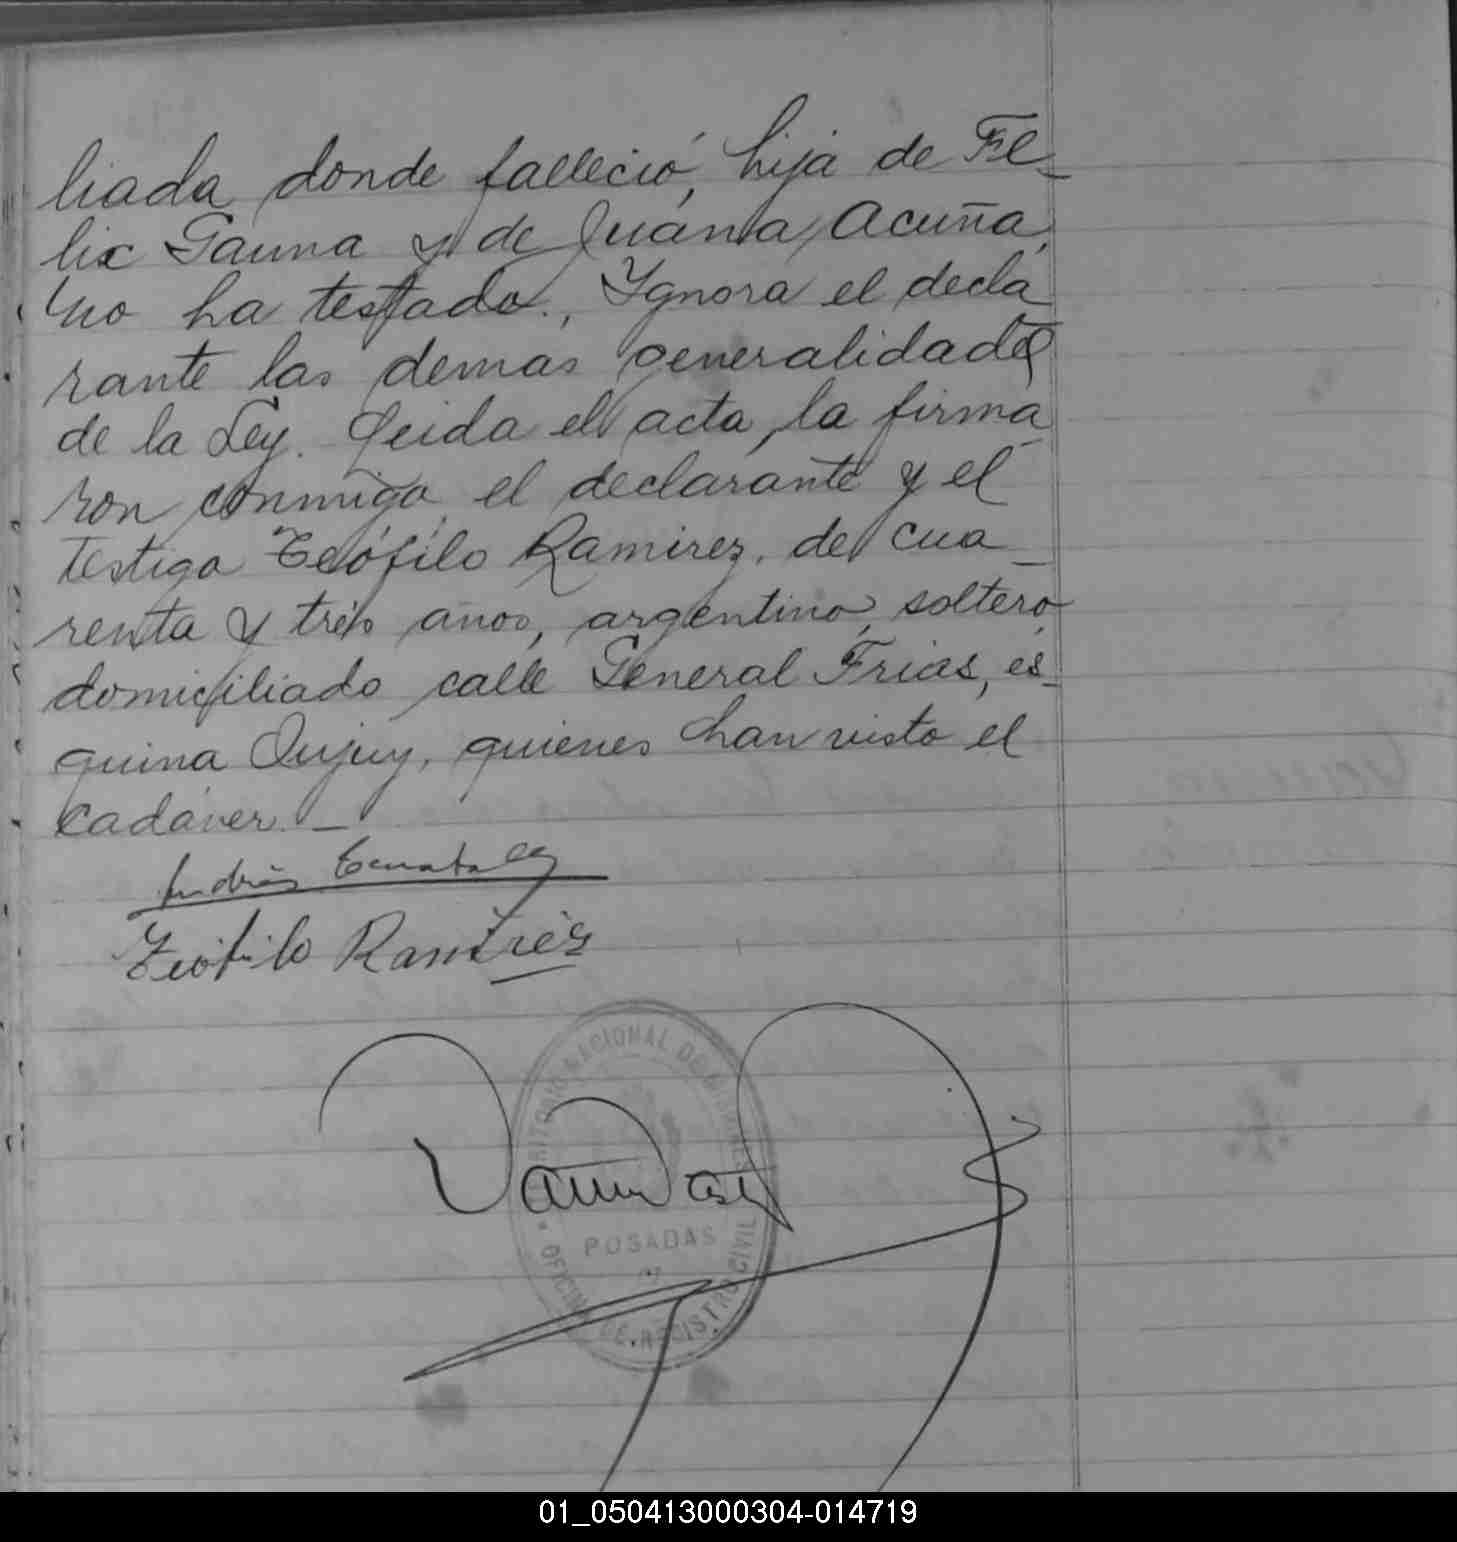 liada donde falleció, hija de Fé_
lix Gauna y de Juana Acuña,
no ha testado., Ygnora el decla
rante las demas generalidades
de la Ley. Leida el acta, la firma_
ron conmigo, el declarante y el
testigo Teófilo Ramirez, de cua_
renta y tres años, argentino, soltero,
domiciliado calle General Frias, es_
quina Jujuy, quienes han visto el
cadáver._
Teófilo Ramirez
TERRITORIO NACIONAL DE MISIONES
POSADAS
OFICINA DE REGISTRO CIVIL
01_050413000304-014719